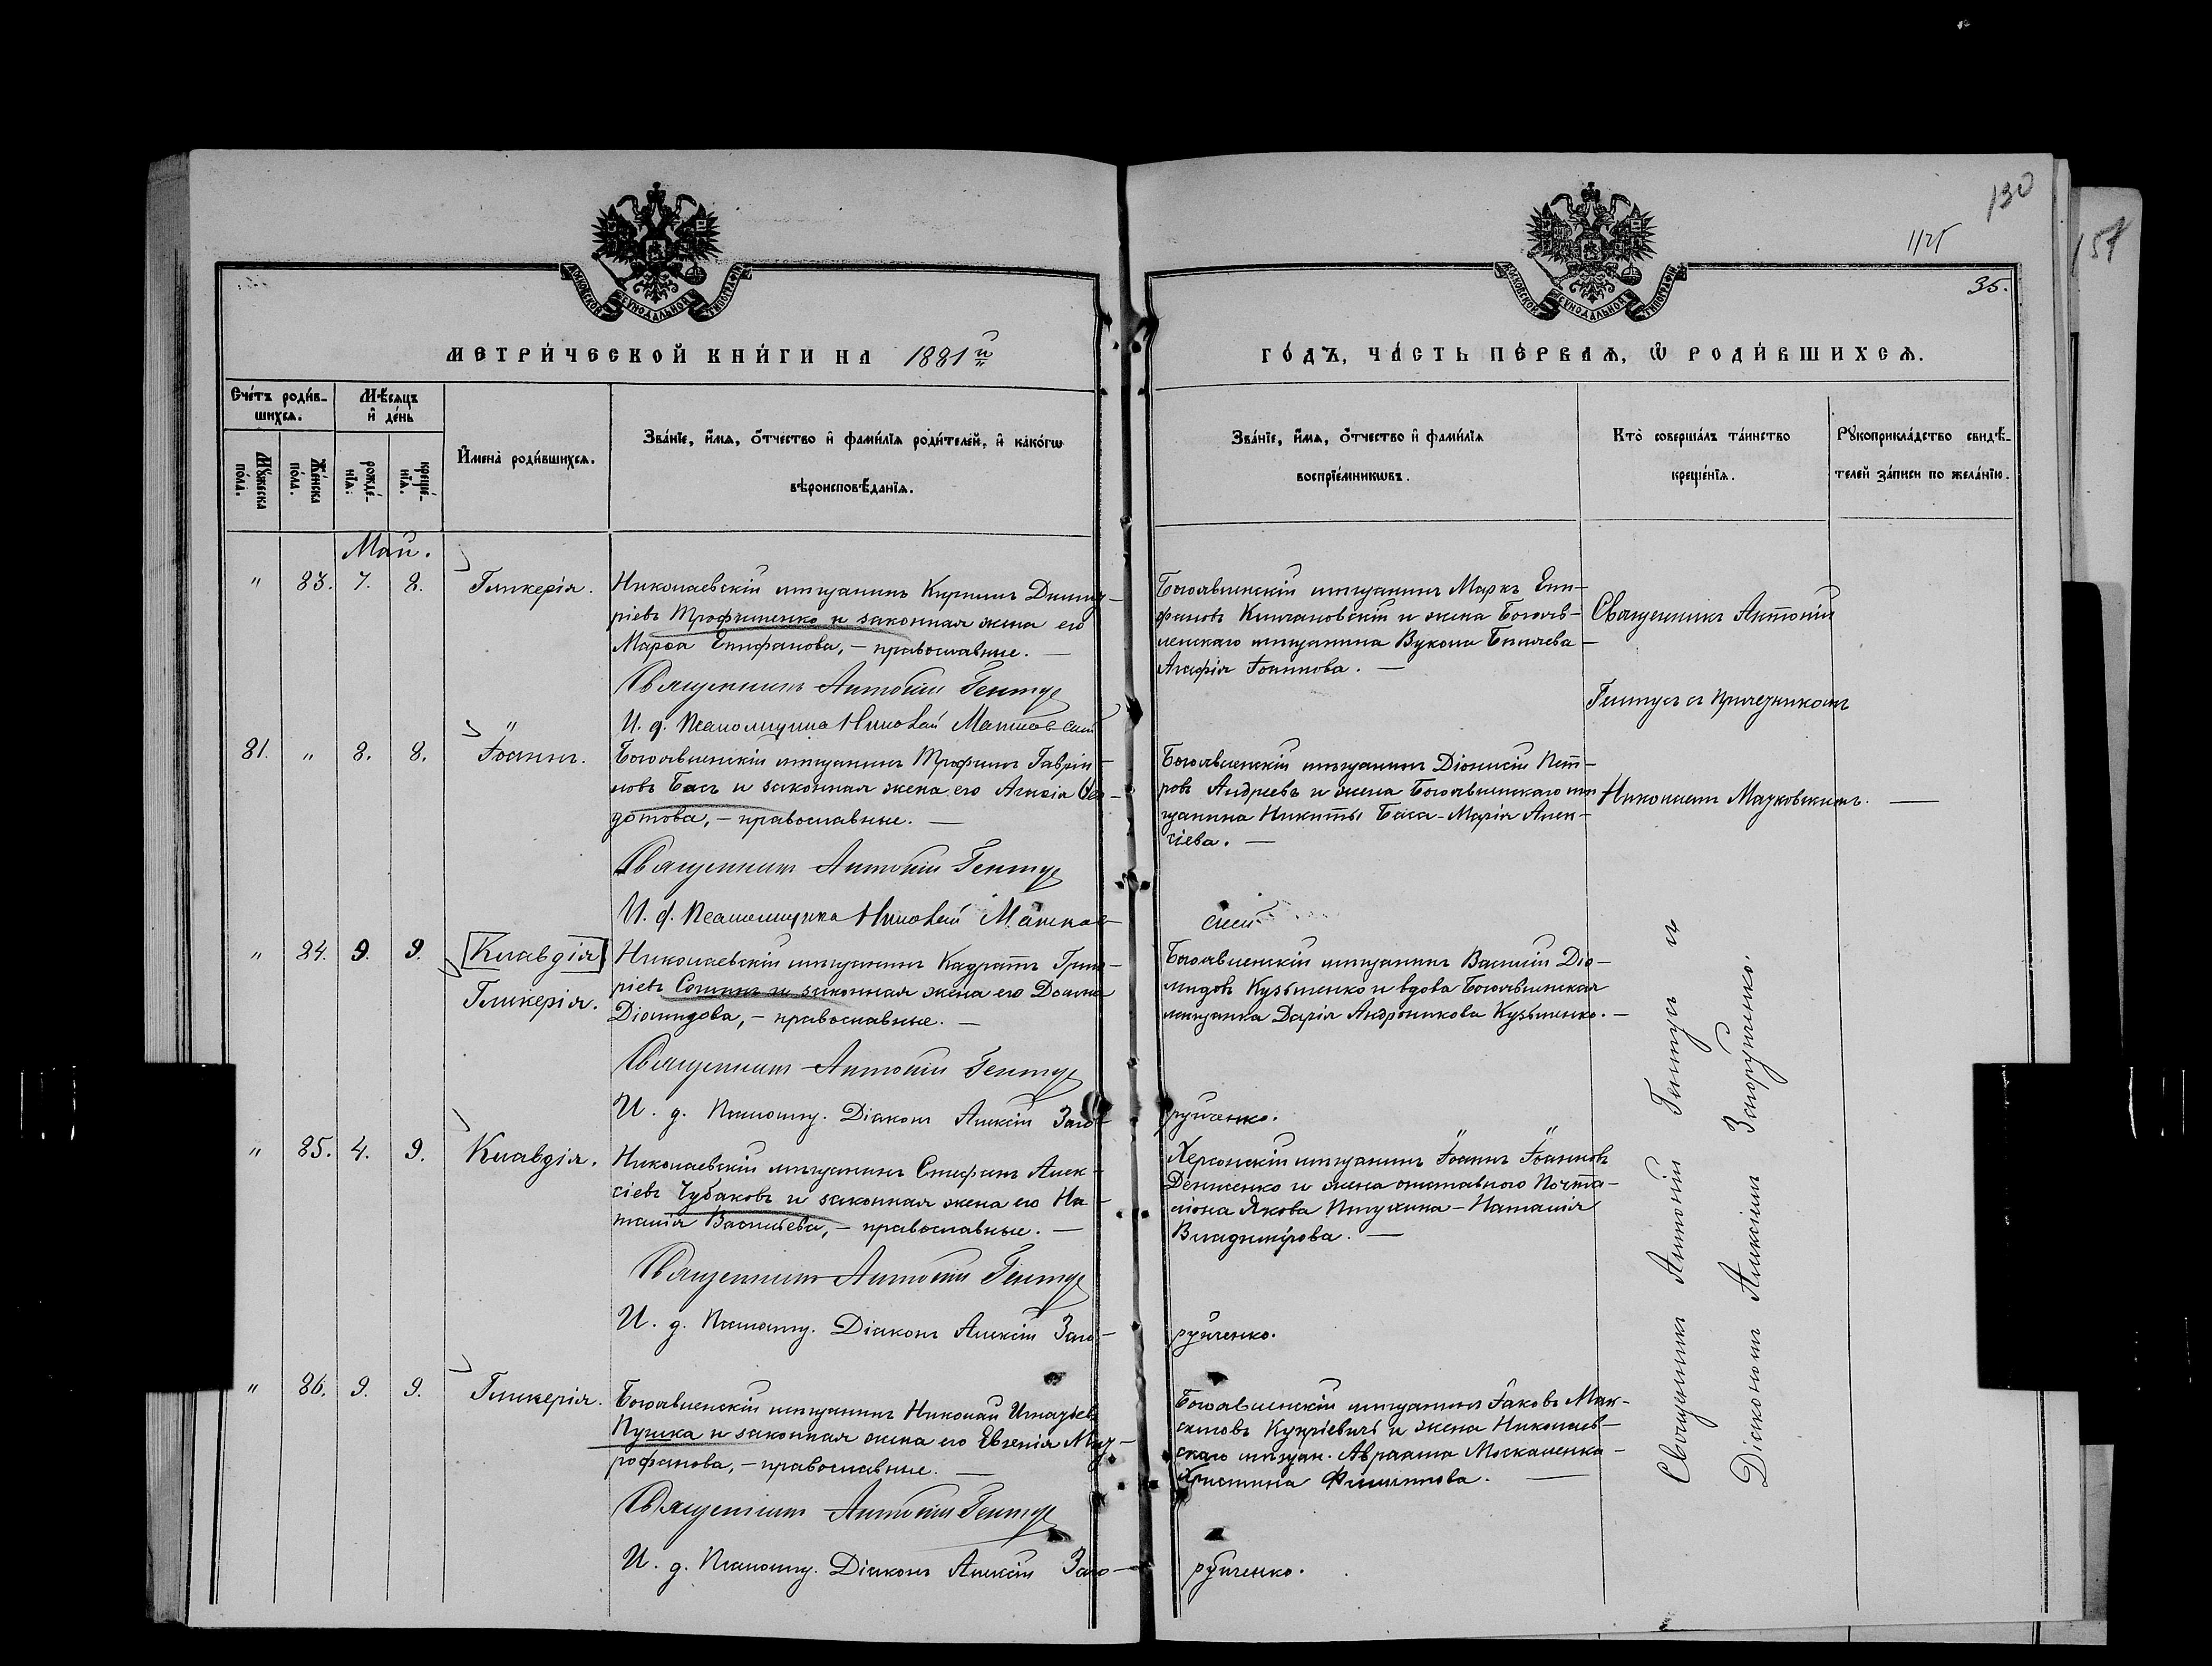 130
1125
157
35.
МОСКОВСКОЙ СУНОДАЛЬНОЙ ТИПОГРАФІИ
МОСКОВСКОЙ СУНОДАЛЬНОЙ ТИПОГРАФІИ
МЕТРИ́ЧЕСКОЙ КНИ́ГИ НА 1881й
ГО́ДЪ, ЧА́СТЬ ПЕ́РВАѦ, Ѡ҆ РОДИ́ВШИХСѦ.
Сче́тъ роди́в-
шихсѧ.
Мѣ́сѧцъ
и҆ де́нь
Мꙋ́жеска
по́ла.
Же́нска
по́ла.
рожде́-
нїѧ.
креще́-
нїѧ.
И҆мена̀ роди́вшихсѧ.
Зва́нїе, и҆́мѧ, ѻ҆́тчество и҆ фамѝлїѧ роди́телей, и҆ како́гѡ
вѣроисповѣ́данїѧ.
Зва́нїе, и҆́мѧ, ѻ҆́тчество и҆ фамѝлїѧ
воспрїе́мникѡвъ.
Кто̀ соверша́лъ та́инство
креще́нїѧ.
Рꙋкоприкла́дство свидѣ́-
телей за́писи по жела́нїю.
Май.
" 83. 7. 8. Гликерія.
Николаевскій мѣщанинъ Кириллъ Димит-
ріевъ Трофименко и законная жена его
Марѳа Епифанова, – православные. –
Священникъ Антоній Гентуе
И. д. Псаломщика Николай Мачковскій
Богоявленскій мѣщанинъ Маркъ Епи-
фановъ Кичановскій и жена Богояв-
ленскаго мѣщанина Вукола Бѣляева –
Агафія Іоаннова. –
Священникъ Антоній
Гентуе съ Причетникомъ
81. " 8. 8. Іоаннъ.
Богоявленскій мѣщанинъ Трофимъ Гавріи-
ловъ Басъ и законная жена его Агаѳія Ѳео-
дотова, – православные. –
Священникъ Антоній Гентуе
И. д. Псаломщика Николай Мачков-
скій
Богоявленскій мѣщанинъ Діонисій Пет-
ровъ Андреевъ и жена Богоявленскаго мѣ-
щанина Никиты Баса – Марія Алек-
сіева. –
Николаемъ Мачковскимъ. –
" 84. 9. 9. Клавдія
Гликерія.
Николаевскій мѣщанинъ Кадратъ Григо-
ріевъ и законная жена его Домна
Діомидова, – православные. –
Священникъ Антоній Гентуе
И. д. Псаломщ. Діаконъ Алексій Заго-
руйченко.
Богоявленскій мѣщанинъ Василій Діо-
мидовъ Кузьменко и вдова Богоявленская
мѣщанка Дарія Андроникова Кузьменко. –
" 85. 4. 9. Клавдія.
Николаевскій мѣщанинъ Стефанъ Алек-
сіевъ Чубаковъ и законная жена его На-
талія Васильева, – православные. –
Священникъ Антоній Гентуе
И. д. Псаломщ. Діаконъ Алексій Заго-
руйченко.
Херсонскій мѣщанинъ Іоаннъ Іоанновъ
Денисенко и жена отставного Почта-
ліона Якова Птухина – Наталія
Владимірова. –
" 86. 9. 9. Гликерія.
Богоявленскій мѣщанинъ Николай Игнатьевъ
Пушка и законная жена его Евгенія Мит-
рофанова, – православные. –
Священникъ Антоній Гентуе
И. д. Псаломщ. Діаконъ Алексій Заго-
руйченко.
Богоявленскій мѣщанинъ Іаковъ Мак-
симовъ Купріевичъ и жена Николаев-
скаго мѣщан. Авраама Москаленка –
Христина Филиппова. –
Священникъ Антоній Гентуе и
Діакономъ Алексіемъ Загоруйченко.